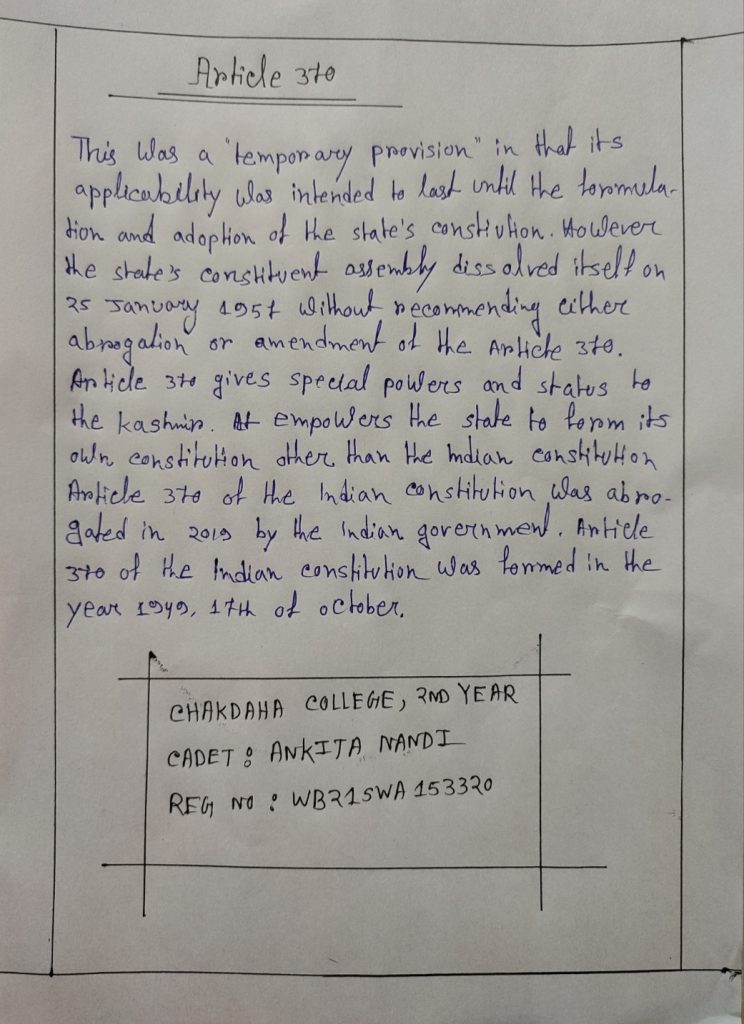 Article 370
This was a "temporary provision" in that its
applicability was intended to last until the formula-
tion and adoption of the state's constivtion. However
the state's constituent assembly dissolved itself on
25 January 1957 without recommending either
abrogation or amendment of the Article 370.
Article 370 gives special powers and status to
the kashmir. It empowers the state to form its
own constitution other than the Indian constitution
Article 370 of the Indian constitution was abro-
gated in 2019 by the Indian government. Article
370 of the Indian constitution was formed in the
year 1949, 17th of october.
CHAKDAHA COLLEGE, 2ND YEAR
CADET : ANKITA NANDI
REG NO : WB21SWA153320